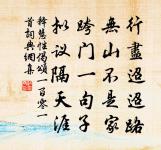 行盡迢迢路
無山不是家
跨門一句子
擬議隔天涯
釋慧性偈頌一百零一
首詞典網集